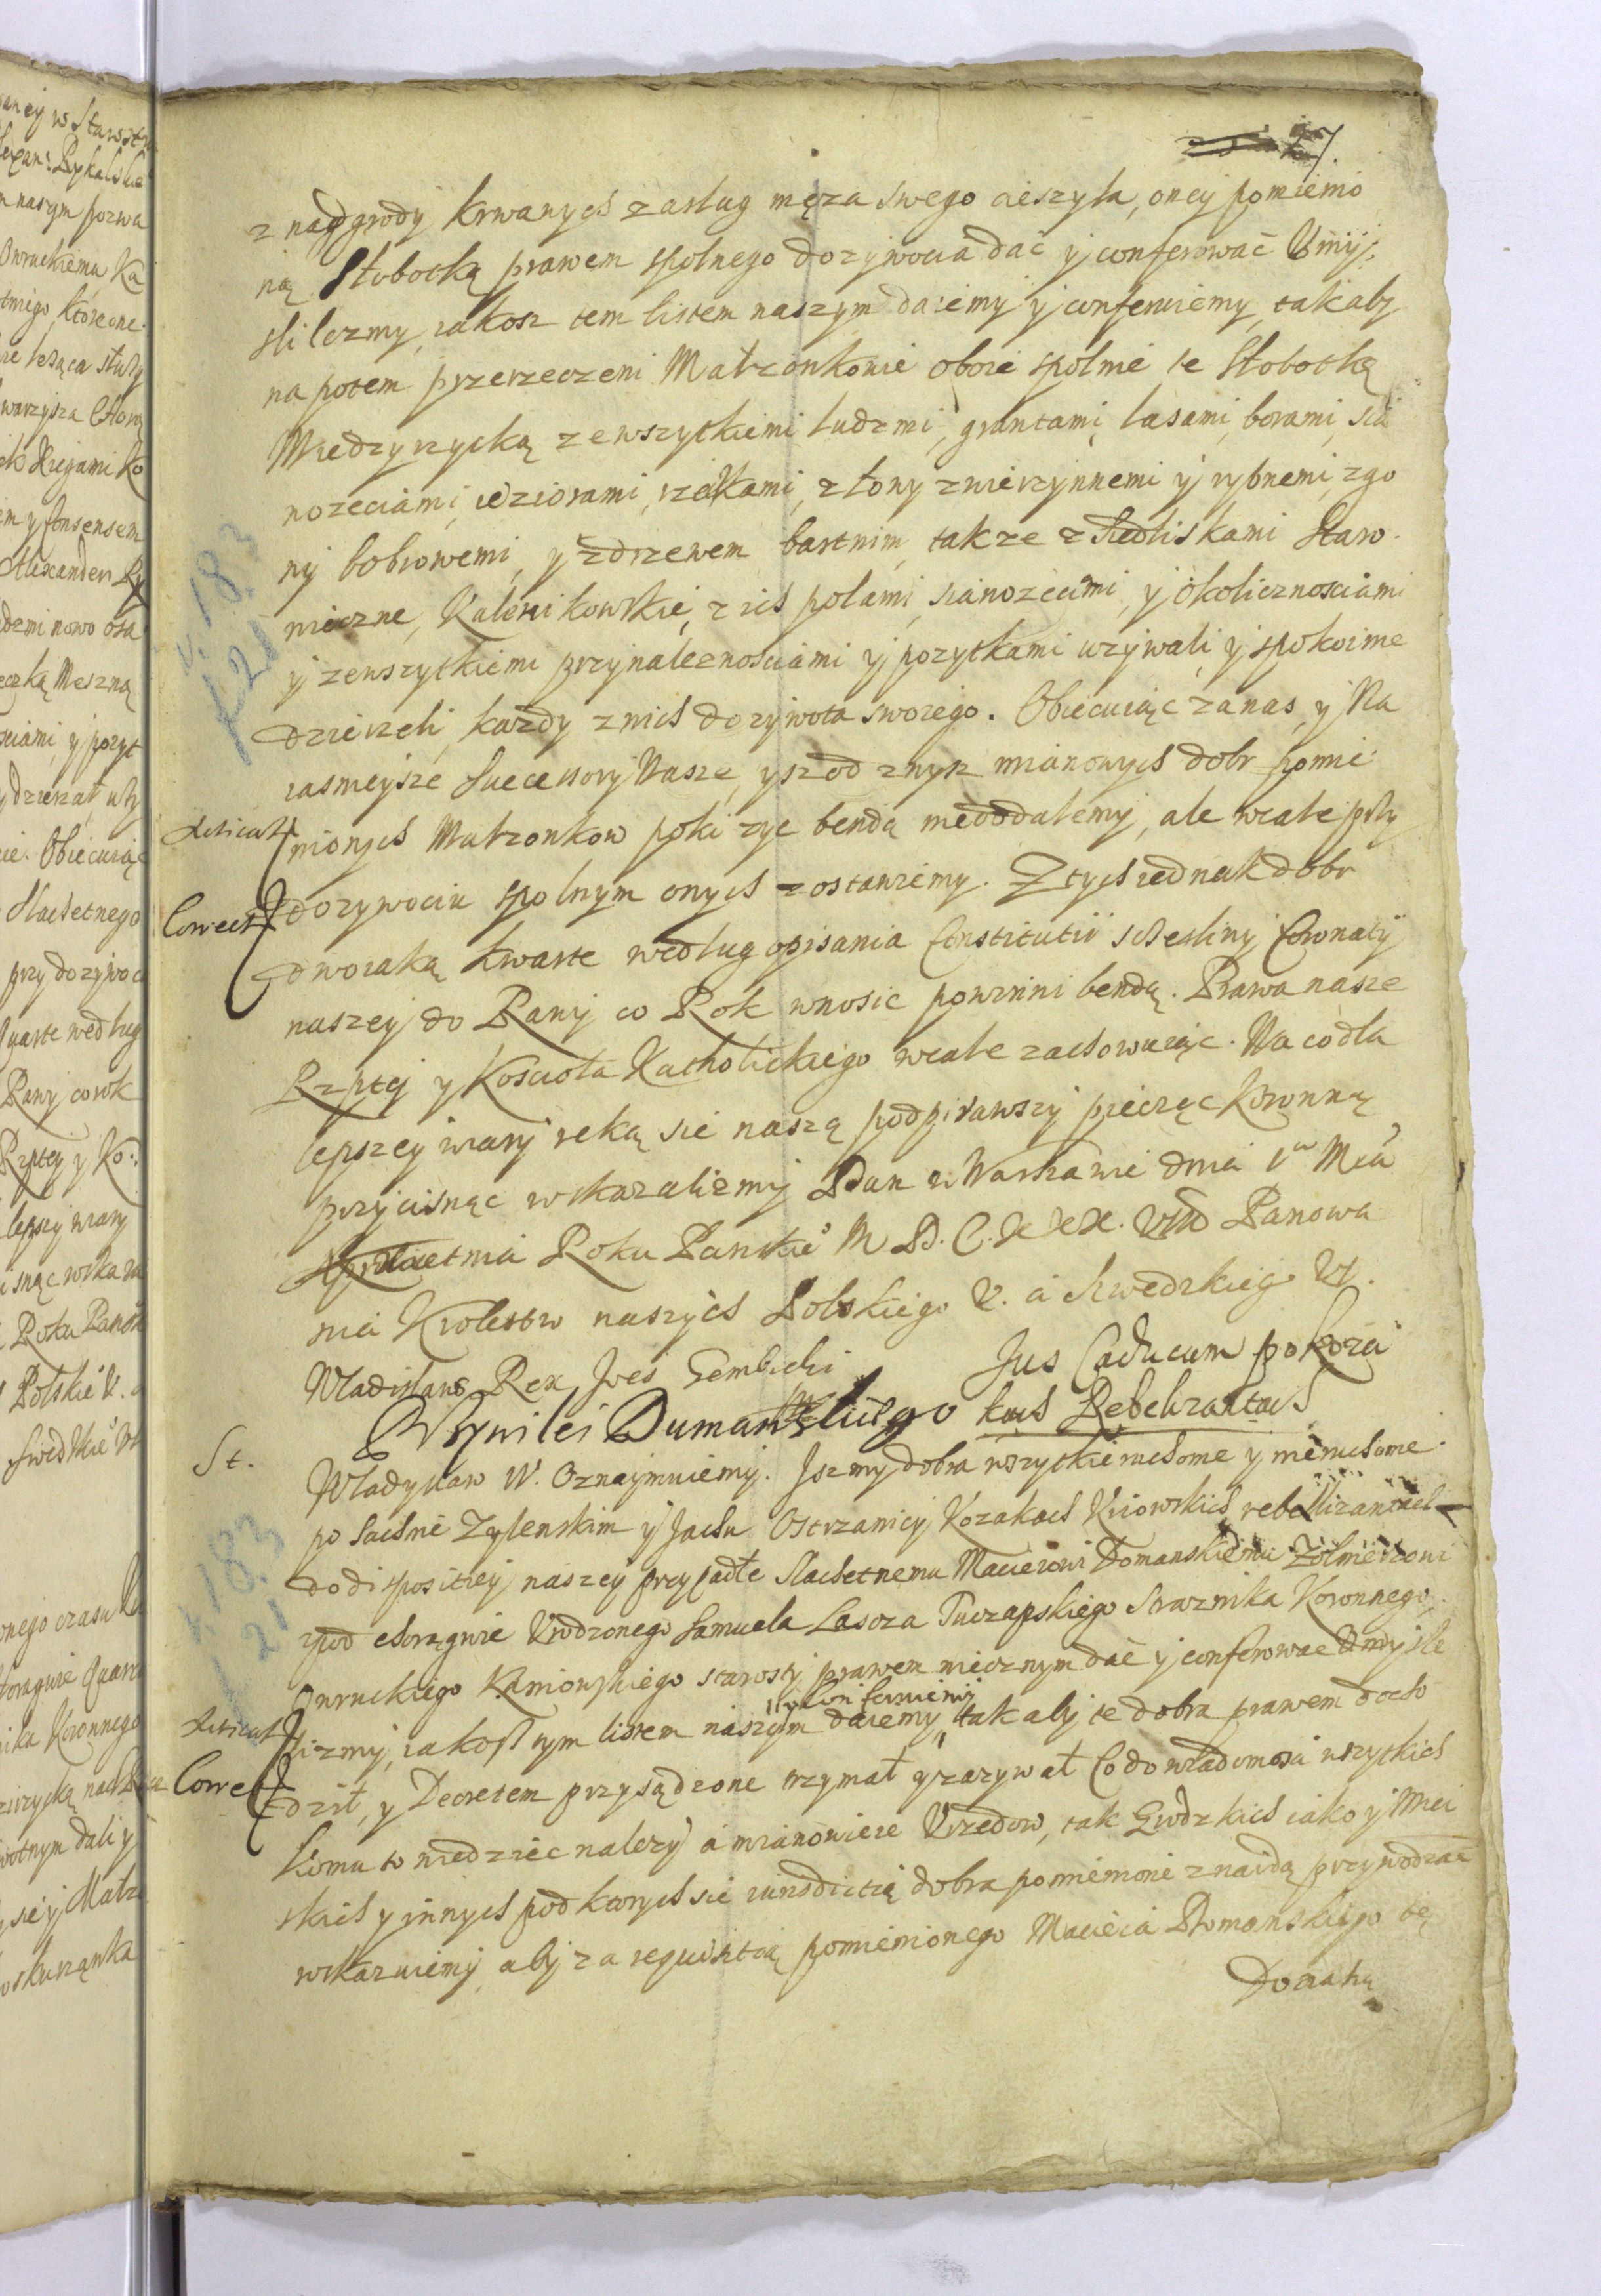 27.
z nadgrody krwawych zasług męża swego cieszyła, oney pomienio
ną Słobotką prawem spolnego dozywocia dać y conferować Vmy
slilizmy, iakosz tem listem naszym daiemy y conferuiemy, tak aby
na potem przerzeczeni Małzonkowie oboie społnie te Słobotką
Miedzyrzycką zewszytkiemi ludzmi, gruntami, lasami, borami, sia
nozeciami, ieziorami, rzekami, z łony zwierzynnemi y rybnemi, zgo
ny bobrowemi, y zdrzewem bartnim, takze z siedliskami Staro
mieczne, Kalenikowskie, z ich polami, sianozeciami, y okolicznosciami
y zewszytkiemi przynaleznosciami y pozytkami uzywali, y spokoinie
dzierzeli, kazdy znich do zywota swoiego. Obiecuiąc za nas, y Na
iasnieysze Successory Nasze, ysz od znysz mianowych dobr pomie
nionych Małzonkow poki zyc bendą nieoddalemy, ale wcale przy
dozywociu spolnym onych zostawiemy. Z tych iednak dobr
dwoiaką kwarte według opisania Constitutii
naszey do Rawy co Rok wnosic powinni bendą. Prawa nasze
Rzptej y Koscioła Katholickiego wcale zachowuiąc. Na co dla
lepszey wiary ręką sie naszą podpisawszy pieczęc Koronną
przycisnąc wskazalizmy Dan w Warszawie dnia 1 Mca
Kwietnia Roku Panskie° M. D. C. XXX. VIII Panowa
nia Krolestw naszych Polskiego V. a Szwedzkieg° VI.
Wladislaus Rex, Joes Gembicki
Przywilei Dumanskiego Jus Caducum po Koza
kach Rebelizantach
St.
Władysław IV. Oznaymuiemy. Jszmy dobra wszytkie ruchome y nieruchome
po Sachnie Zylenskim y Jachu Ostrzanicy Kozakach Kiiowskich rebellizantach
do dispositiey naszey przypadłe Slachetnemu Macieiowi Domanskiemu Zołnierzowi
zpod chorągwie Vrodzonego Samuela Lascza Tuczapskiego Strażnika Koronnego,
Owruckiego Kaniowskiego starosty prawem wiecznym dać y conferowac Umysle
lizmy, iakosz tym listem naszym daiemy, y Conferuiemy tak aby te dobra prawem docho
dził, y Decretem przysądzone trzymał y zazywał Co do wiadomosci wszytkich
komu to wiedziec nalezy a mianowicie Vrzedow, tak Grodzkich iako y Miei
skich y innych pod ktorych sie iurisdictią dobra pomienione znaidą przywodzac
wskazuiemy, aby za requisitią pomienionego Macieia Domanskiego tę
Correct
Correct